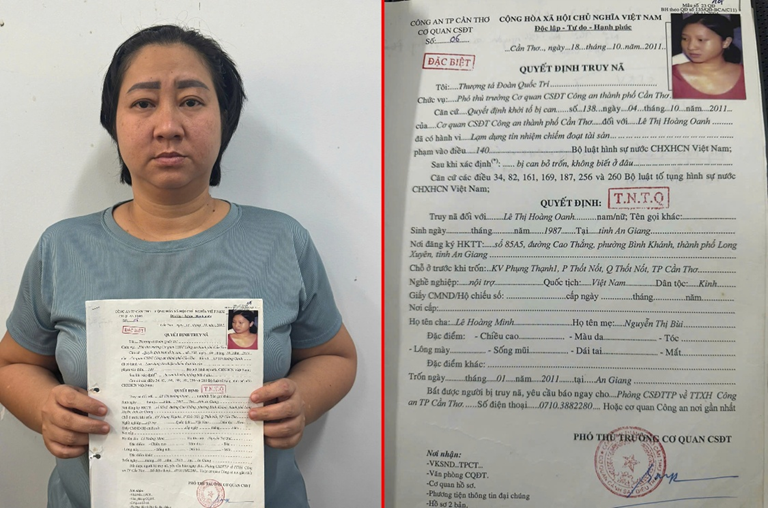 Mẫu số 23 QĐ
BH theo QĐ số 1351/QĐ-BCA(C11)
CÔNG AN TP CẦN THƠ
CƠ QUAN CSĐT
Số: 06
CỘNG HÒA XÃ HỘI CHỦ NGHĨA VIỆT NAM
Độc lập - Tự do - Hạnh phúc
Cần Thơ, ngày..18...tháng..10..năm..2011...
ĐẶC BIỆT
QUYẾT ĐỊNH TRUY NÃ
Tôi:...Thượng tá Đoàn Quốc Trí
Chức vụ:...Phó thủ trưởng Cơ quan CSĐT Công an thành phố Cần Thơ
Căn cứ....Quyết định khởi tố bị can......số..138..ngày..04....tháng..10.năm...2011...
của....Cơ quan CSĐT Công an thành phố Cần Thơ.....đối với....Lê Thị Hoàng Oanh
đã có hành vi....Lạm dụng tín nhiệm chiếm đoạt tài sản
phạm vào điều....140 Bộ luật hình sự nước CHXHCN Việt Nam;
Sau khi xác định(*):.... bị can bỏ trốn, không biết ở đâu
Căn cứ các điều 34, 82, 161, 169, 187, 256 và 260 Bộ luật tố tụng hình sự nước
CHXHCN Việt Nam;
QUYẾT ĐỊNH:
T.N.T.Q
Truy nã đối với......Lê Thị Hoàng Oanh......nam/nữ; Tên gọi khác:
Sinh ngày......tháng......năm...1987...Tại...tỉnh An Giang
Nơi đăng ký HKTT:...số 85A5, đường Cao Thắng, phường Bình Khánh, thành phố Long
Xuyên, tỉnh An Giang
Chỗ ở trước khi trốn:...KV Phụng Thạnh1, P Thốt Nốt, Q Thốt Nốt, TP Cần Thơ
Nghề nghiệp:......nội trợ......Quốc tịch:...Việt Nam......Dân tộc:...Kinh
Giấy CMND/Hộ chiếu số:......cấp ngày......tháng......năm
Nơi cấp:
Họ tên cha:......Lê Hoàng Minh......Họ tên mẹ:......Nguyễn Thị Bùi
Đặc điểm: - Chiều cao......- Màu da......- Tóc
- Lông mày......- Sống mũi......- Dái tai......- Mắt
Đặc điểm khác:
Trốn ngày......tháng...01...năm...2011...tại....An Giang
Bắt được người bị truy nã, yêu cầu báo ngay cho....Phòng CSĐTTP về TTXH Công
an TP Cần Thơ....Số điện thoại....0710.3882280... Hoặc cơ quan Công an nơi gần nhất
PHÓ THỦ TRƯỞNG CƠ QUAN CSĐT
Nơi nhận:
-VKSND..TPCT..
-Văn phòng CQĐT.
-Cơ quan hồ sơ.
-Phương tiện thông tin đại chúng
- Hồ sơ 2 bản.